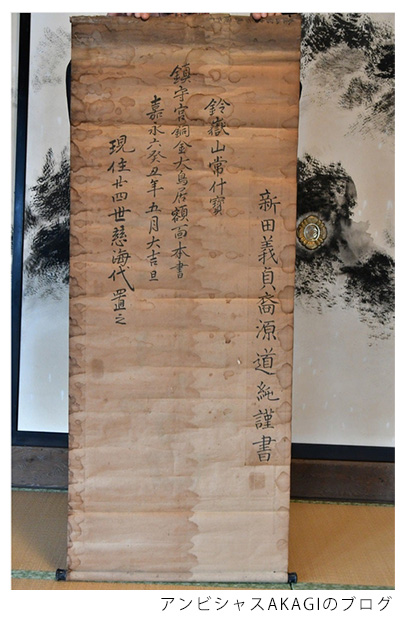 新田義貞裔源道純謹書
鈴嶽山常什寳
鎮守宮銅金大鳥居額面本書
嘉永六癸丑年五月大吉旦
現住廿四世慈海代置之
アンビシャスAKAGIのブログ